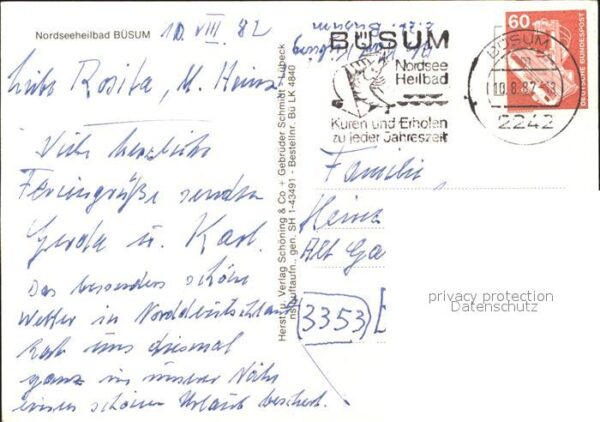 Nordseeheilbad BÜSUM
10. VIII. 82
Liebe Rosita, u. Heinz
Viele herzliche
Feriengrüße senden
Gerda u. Karl.
Das besonders schöne
Wetter in Norddeutschland
hat uns diesmal
ganz in unserer Nähe
einen schönen Urlaub beschert.
Gebrüder Schmidt - Lübeck
Verlag Schöning & Co +
SH 1-43491 - Bestellnr. Bü LK 4840
z.Zt. Büsum
BÜSUM
Nordsee
Heilbad
Kuren und Erholen
zu jeder Jahreszeit
BÜSUM
10.8.82-18
2242
60
DEUTSCHE BUNDESPOST
Familie
Heinz
Alt Ga
(3353)
privacy protection
Datenschutz